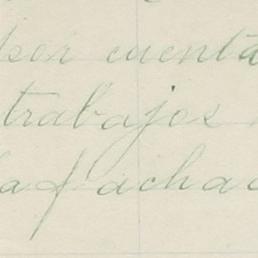 por cuenta
trabajos
la fachad